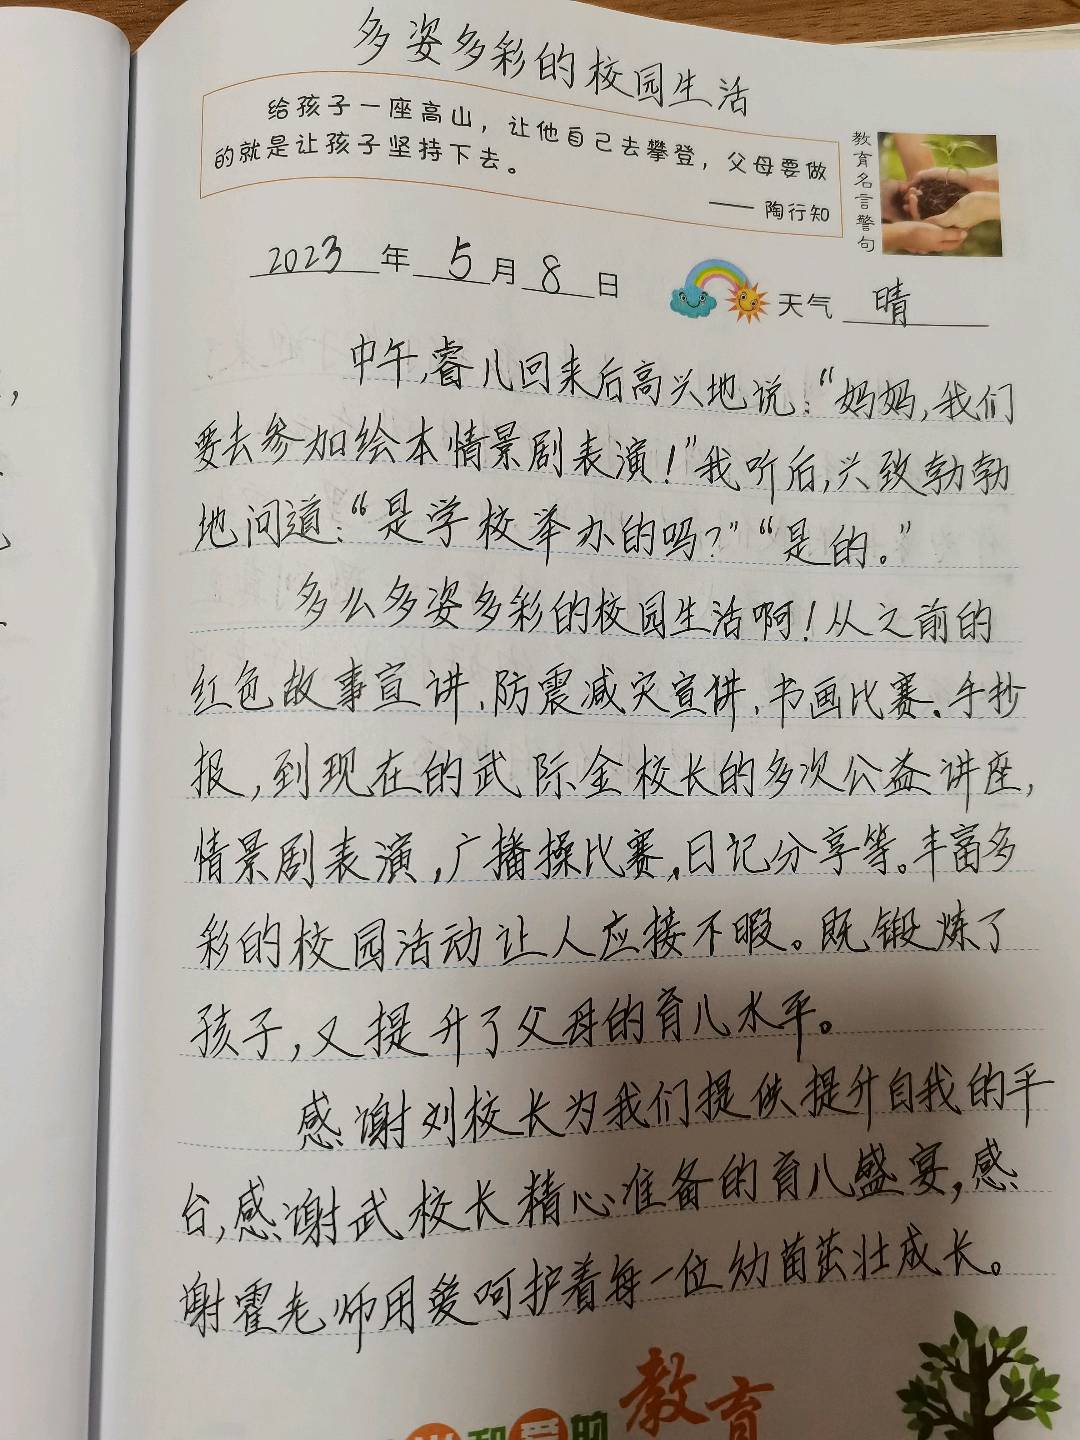 多姿多彩的校园生活
给孩子一座高山，让他自己去攀登，父母要做
的就是让孩子坚持下去。
—— 陶行知
教育名言警句
2023年5月8日
天气 晴
中午,睿儿回来后高兴地说：“妈妈,我们
要去参加绘本情景剧表演！”我听后,兴致勃勃
地问道：“是学校举办的吗？”“是的。”
多么多姿多彩的校园生活啊！从之前的
红色故事宣讲、防震减灾宣讲、书画比赛、手抄
报,到现在的武际金校长的多次公益讲座,
情景剧表演,广播操比赛,日记分享等。丰富多
彩的校园活动让人应接不暇。既锻炼了
孩子,又提升了父母的育儿水平。
感谢刘校长为我们提供提升自我的平
台,感谢武校长精心准备的育儿盛宴,感
谢霍老师用爱呵护着每一位幼苗茁壮成长。
和爱的教育